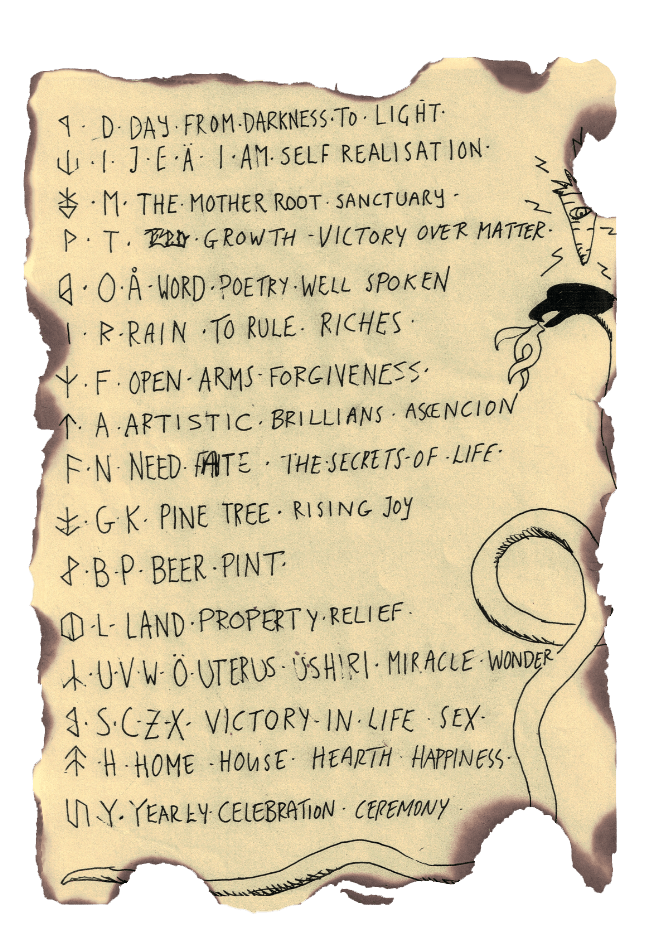 D · DAY · FROM · DARKNESS · TO · LIGHT ·
· I · J · E · Ä · I · AM · SELF REALISATION ·
· M · THE · MOTHER ROOT · SANCTUARY -
· T · GROWTH - VICTORY OVER MATTER ·
· O · Å · WORD · POETRY · WELL SPOKEN
· R · RAIN · TO RULE · RICHES ·
· F · OPEN · ARMS · FORGIVENESS ·
· A · ARTISTIC · BRILLIANS · ASCENCION
· N · NEED · FATE · THE · SECRETS · OF · LIFE ·
· G · K · PINE TREE · RISING JOY
· B · P · BEER · PINT ·
· L · LAND · PROPERTY · RELIEF ·
· U · V · W · Ö · UTERUS · ÜSHIRI · MIRACLE · WONDER
· S · C · Z · X · VICTORY · IN · LIFE · SEX ·
· H · HOME · HOUSE · HEARTH HAPPINESS ·
· Y · YEARLY · CELEBRATION · CEREMONY ·